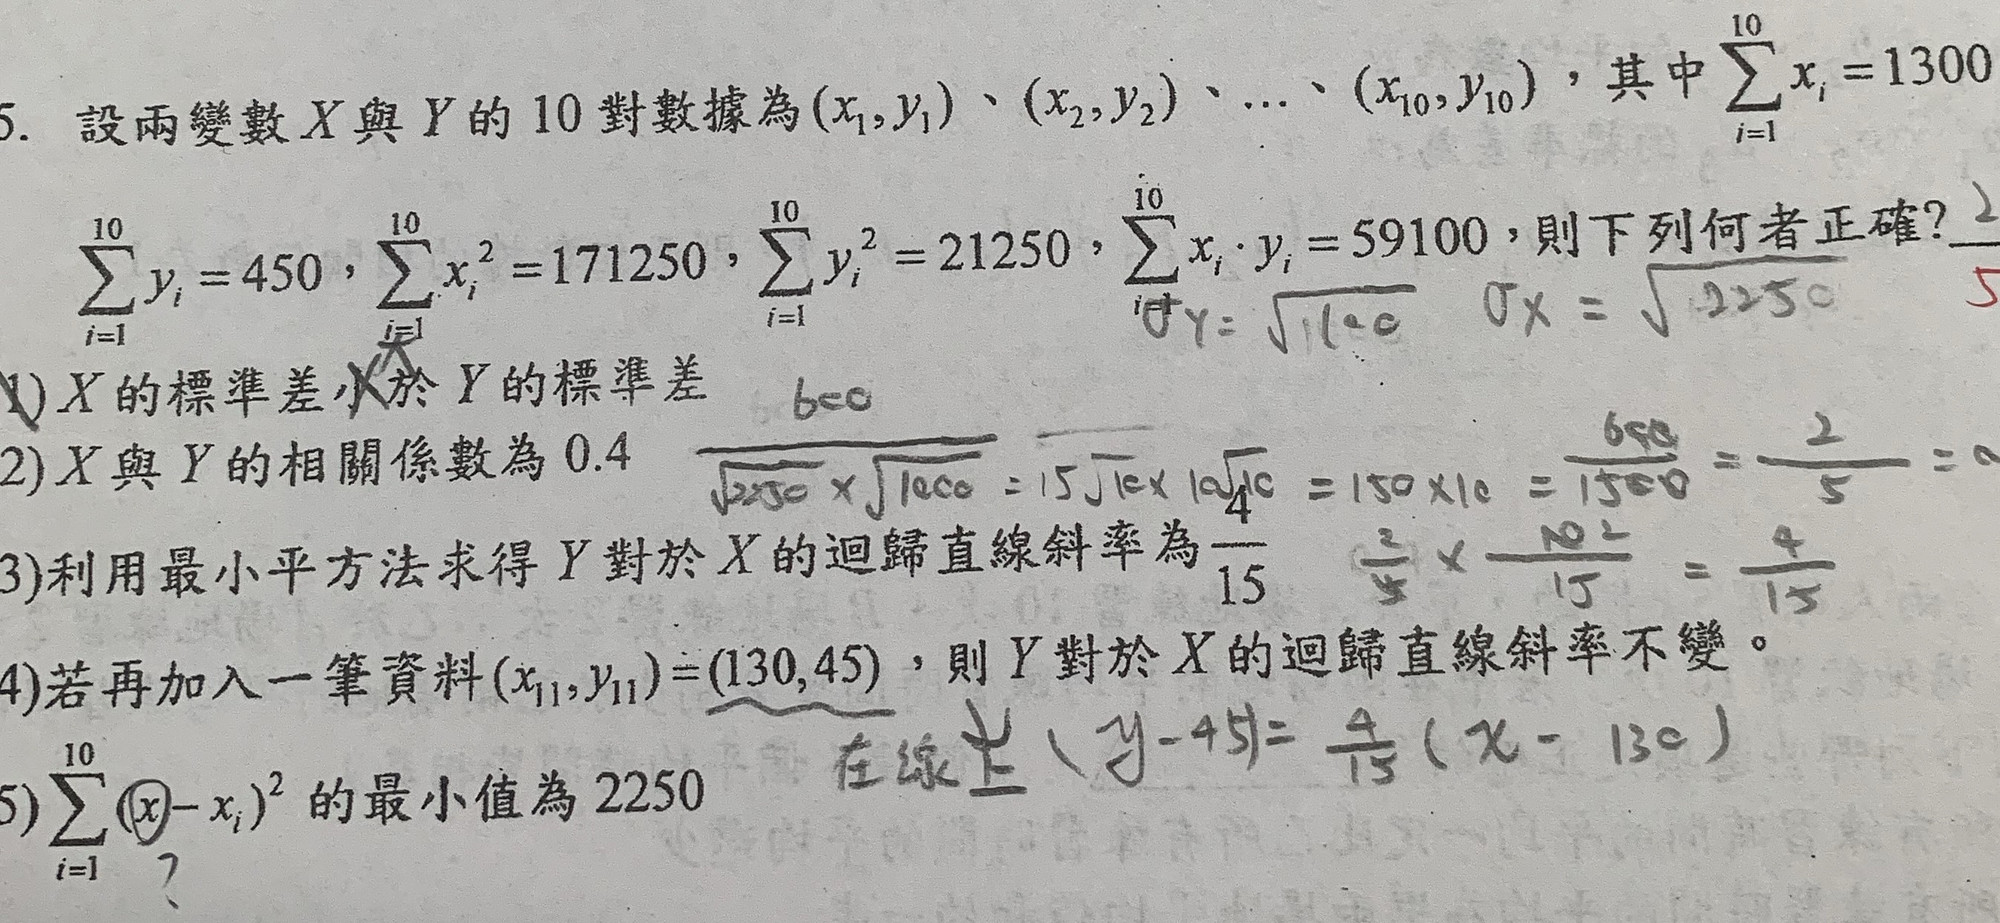 5. 設兩變數 X 與 Y 的 10 對數據為 (x₁, y₁)、(x₂, y₂)、…、(x₁₀, y₁₀),其中 \sum_{i=1}^{10} x_i = 1300
\sum_{i=1}^{10} y_i = 450,\sum_{i=1}^{10} x_i^2 = 171250,\sum_{i=1}^{10} y_i^2 = 21250,\sum_{i=1}^{10} x_i · y_i = 59100,則下列何者正確? 2
σY = √1000 σX = √2250 5
1) X 的標準差小於 Y 的標準差
600
2) X 與 Y 的相關係數為 0.4 \frac{600}{√2250 × √1000} = 15√10 × 10√10 = 150×10 = \frac{600}{1500} = \frac{2}{5} = 0
3)利用最小平方法求得 Y 對於 X 的迴歸直線斜率為 \frac{4}{15} \frac{2}{5} × \frac{10}{15} = \frac{4}{15}
4)若再加入一筆資料 (x₁₁, y₁₁) = (130, 45),則 Y 對於 X 的迴歸直線斜率不變。
在線上 (y-45) = \frac{4}{15} (x - 130)
5) \sum_{i=1}^{10} (x - x_i)^2 的最小值為 2250
?